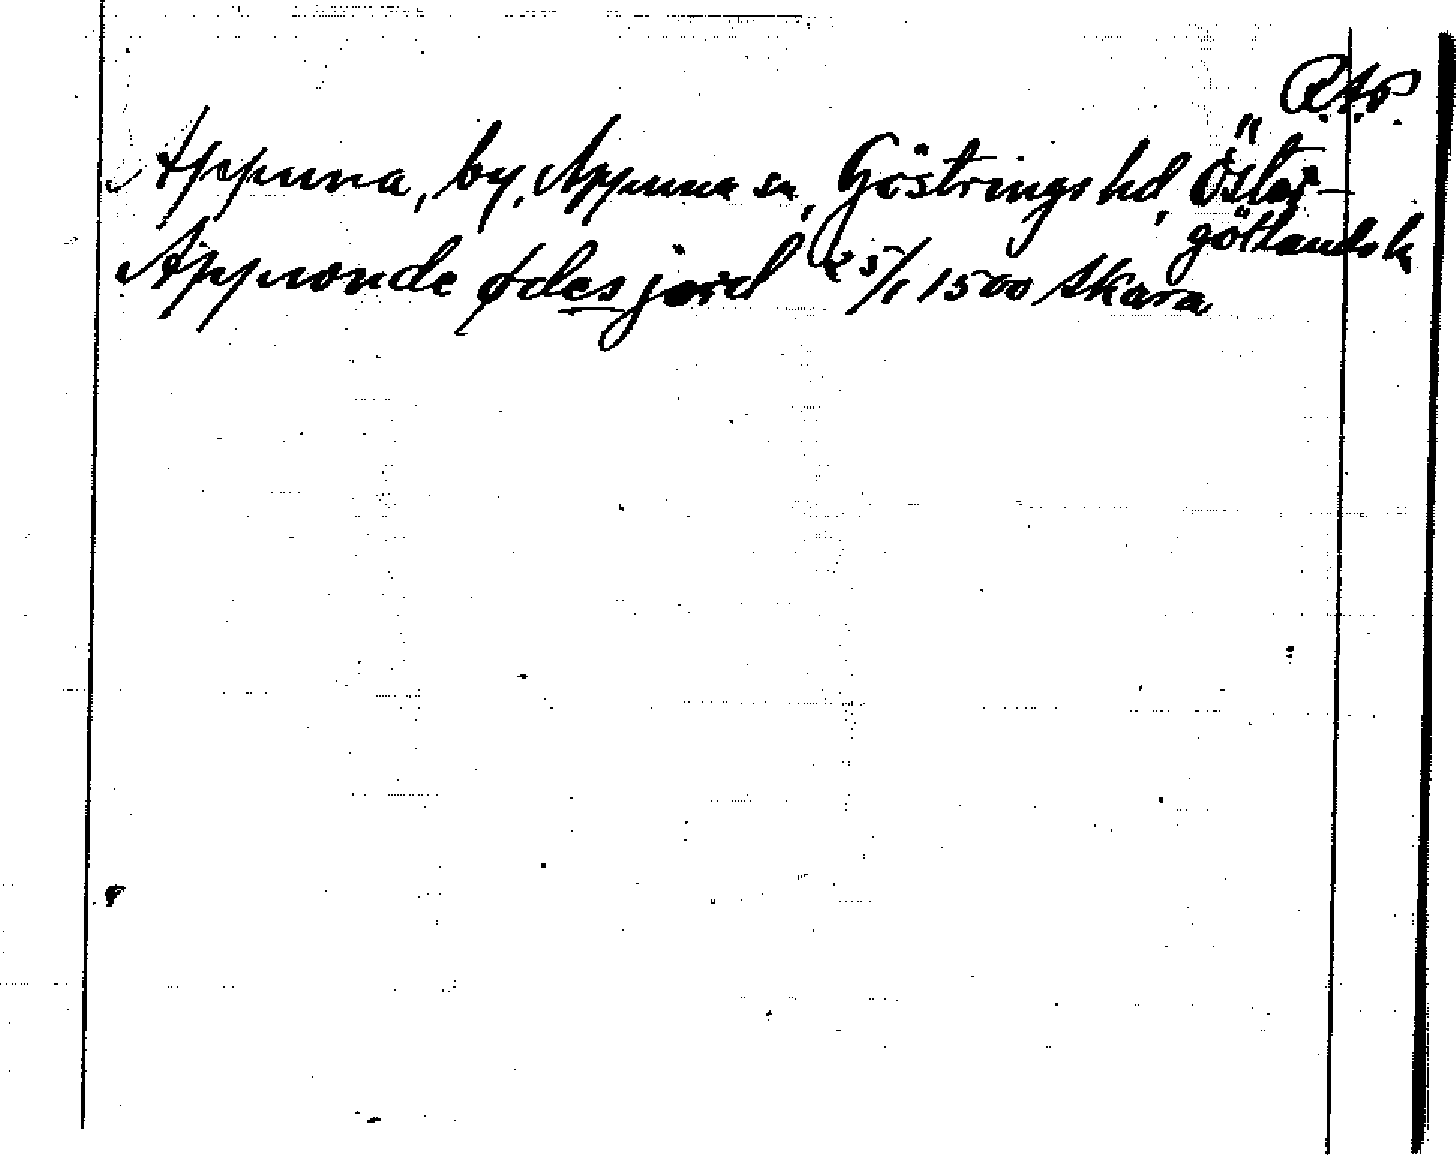 R.A.P.
Appuna, by, Appuna sn, Göstrings hd, Öster-
götlands l.
Appronde ødes jord 25/1 1500 Skara